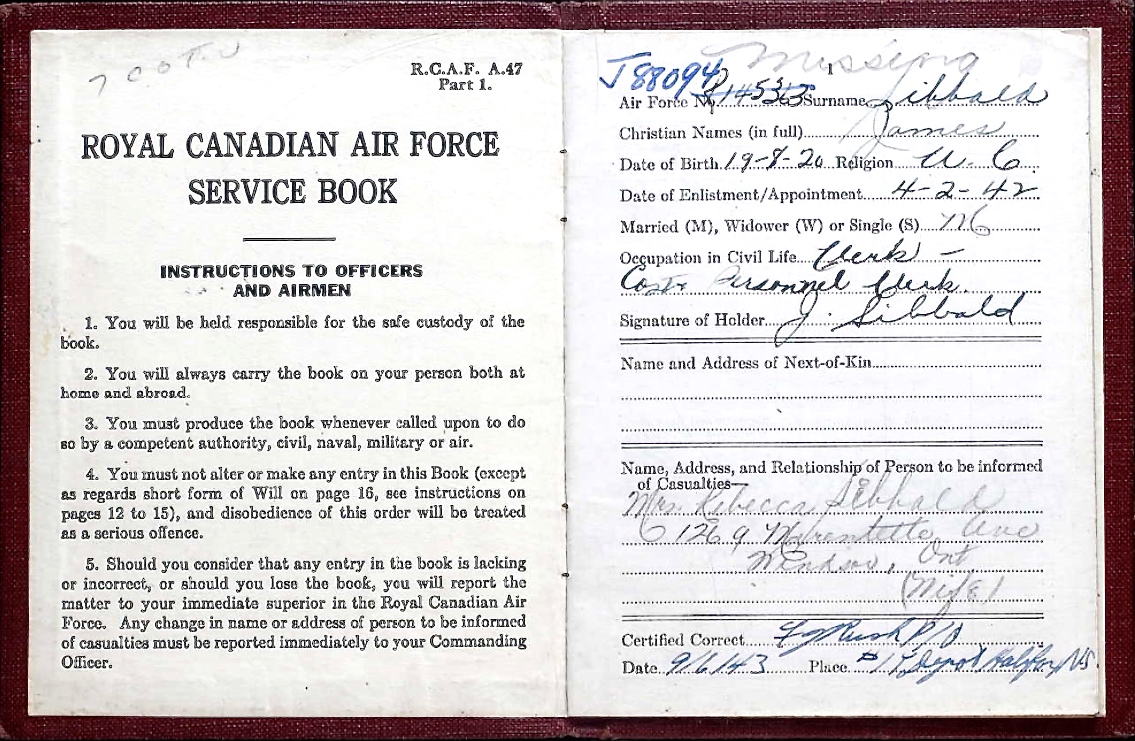 R.C.A.F. A.47
Part 1.
ROYAL CANADIAN AIR FORCE
SERVICE BOOK
INSTRUCTIONS TO OFFICERS
AND AIRMEN
1. You will be held responsible for the safe custody of the
book.
2. You will always carry the book on your person both at
home and abroad.
3. You must produce the book whenever called upon to do
so by a competent authority, civil, naval, military or air.
4. You must not alter or make any entry in this Book (except
as regards short form of Will on page 16, see instructions on
pages 12 to 15), and disobedience of this order will be treated
as a serious offence.
5. Should you consider that any entry in the book is lacking
or incorrect, or should you lose the book, you will report the
matter to your immediate superior in the Royal Canadian Air
Force. Any change in name or address of person to be informed
of casualties must be reported immediately to your Commanding
Officer.
Missing
1
J88094
Air Force No. Surname Sibbald
Christian Names (in full) James
Date of Birth 19-8-20 Religion U. C.
Date of Enlistment/Appointment 4-2-42
Married (M), Widower (W) or Single (S) M
Occupation in Civil Life Clerk -
Personnel Clerk.
Signature of Holder J. Sibbald
Name and Address of Next-of-Kin
Name, Address, and Relationship of Person to be informed
of Casualties—
Mrs. Rebecca Sibbald
1269 Marentette Ave
Windsor, Ont
(Wife)
Certified Correct P/O
Date 9/6/43 Place Depot Halifax NS